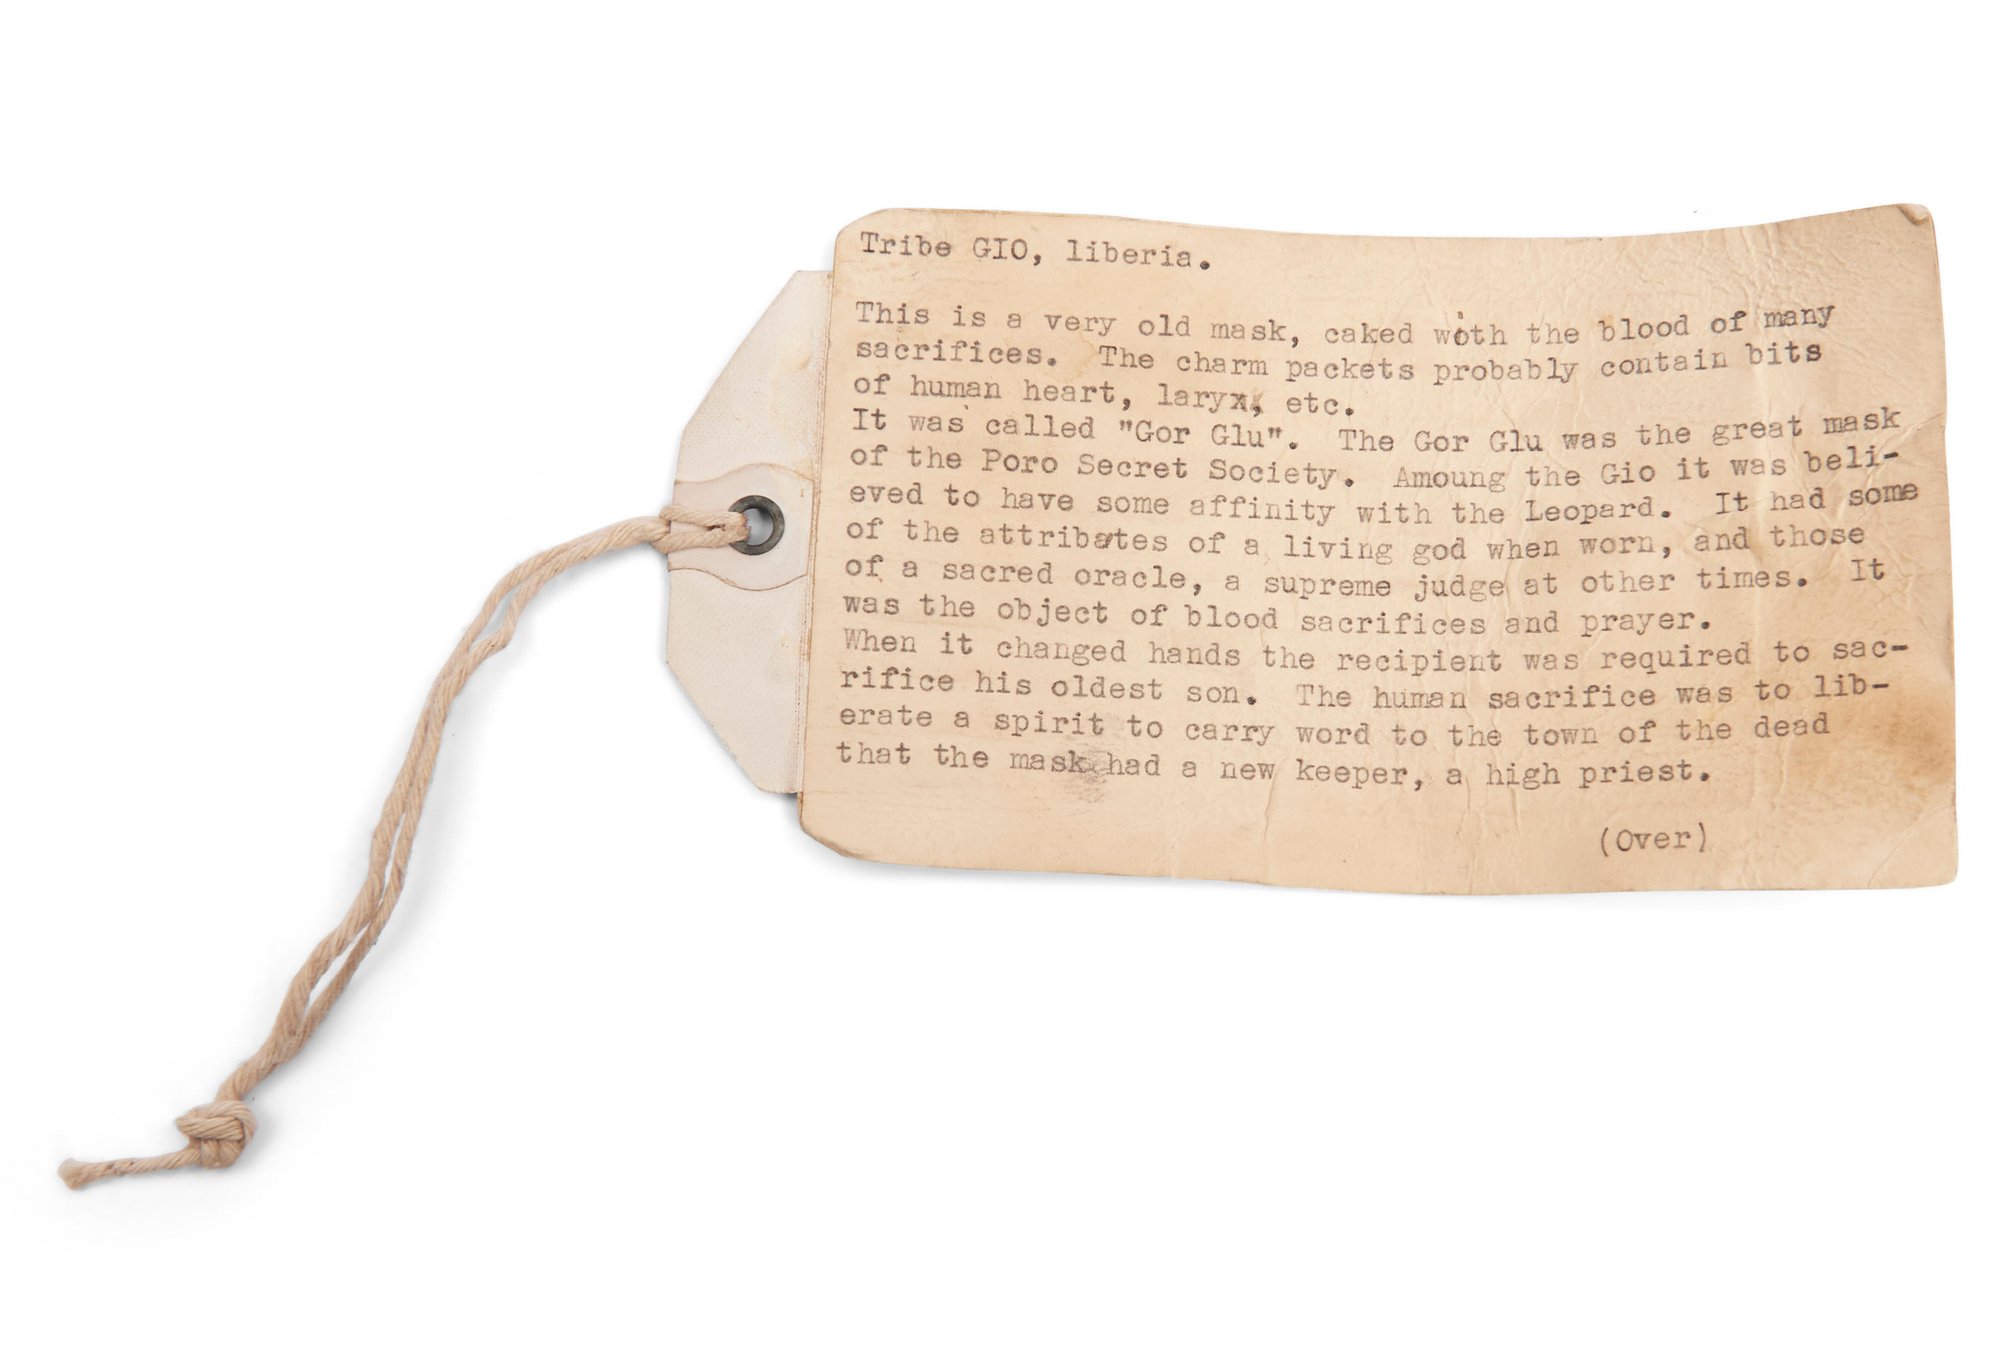 Tribe GIO, liberia.
This is a very old mask, caked with the blood of many
sacrifices. The charm packets probably contain bits
of human heart, laryx, etc.
It was called "Gor Glu". The Gor Glu was the great mask
of the Poro Secret Society. Amoung the Gio it was beli-
eved to have some affinity with the Leopard. It had some
of the attributes of a living god when worn, and those
of a sacred oracle, a supreme judge at other times. It
was the object of blood sacrifices and prayer.
When it changed hands the recipient was required to sac-
rifice his oldest son. The human sacrifice was to lib-
erate a spirit to carry word to the town of the dead
that the mask had a new keeper, a high priest.
(Over)